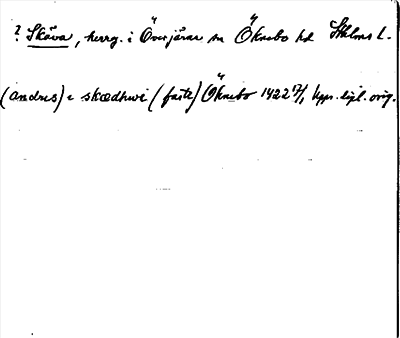 ? Skäva, herrg. i Överjärna sn Öknebo hd Sthlms l.
(andres) i skædhwi (faste) Öknebo 1422 7/1 Upps. dipl. orig.